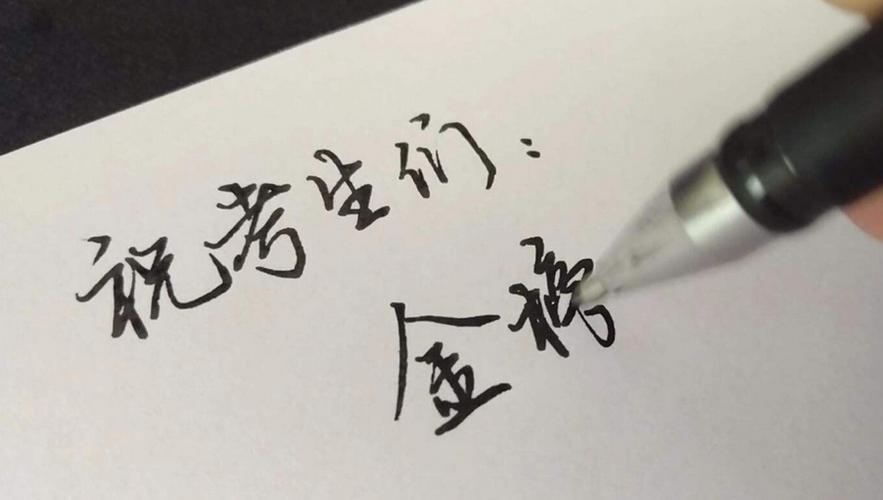 祝考生们:
金榜